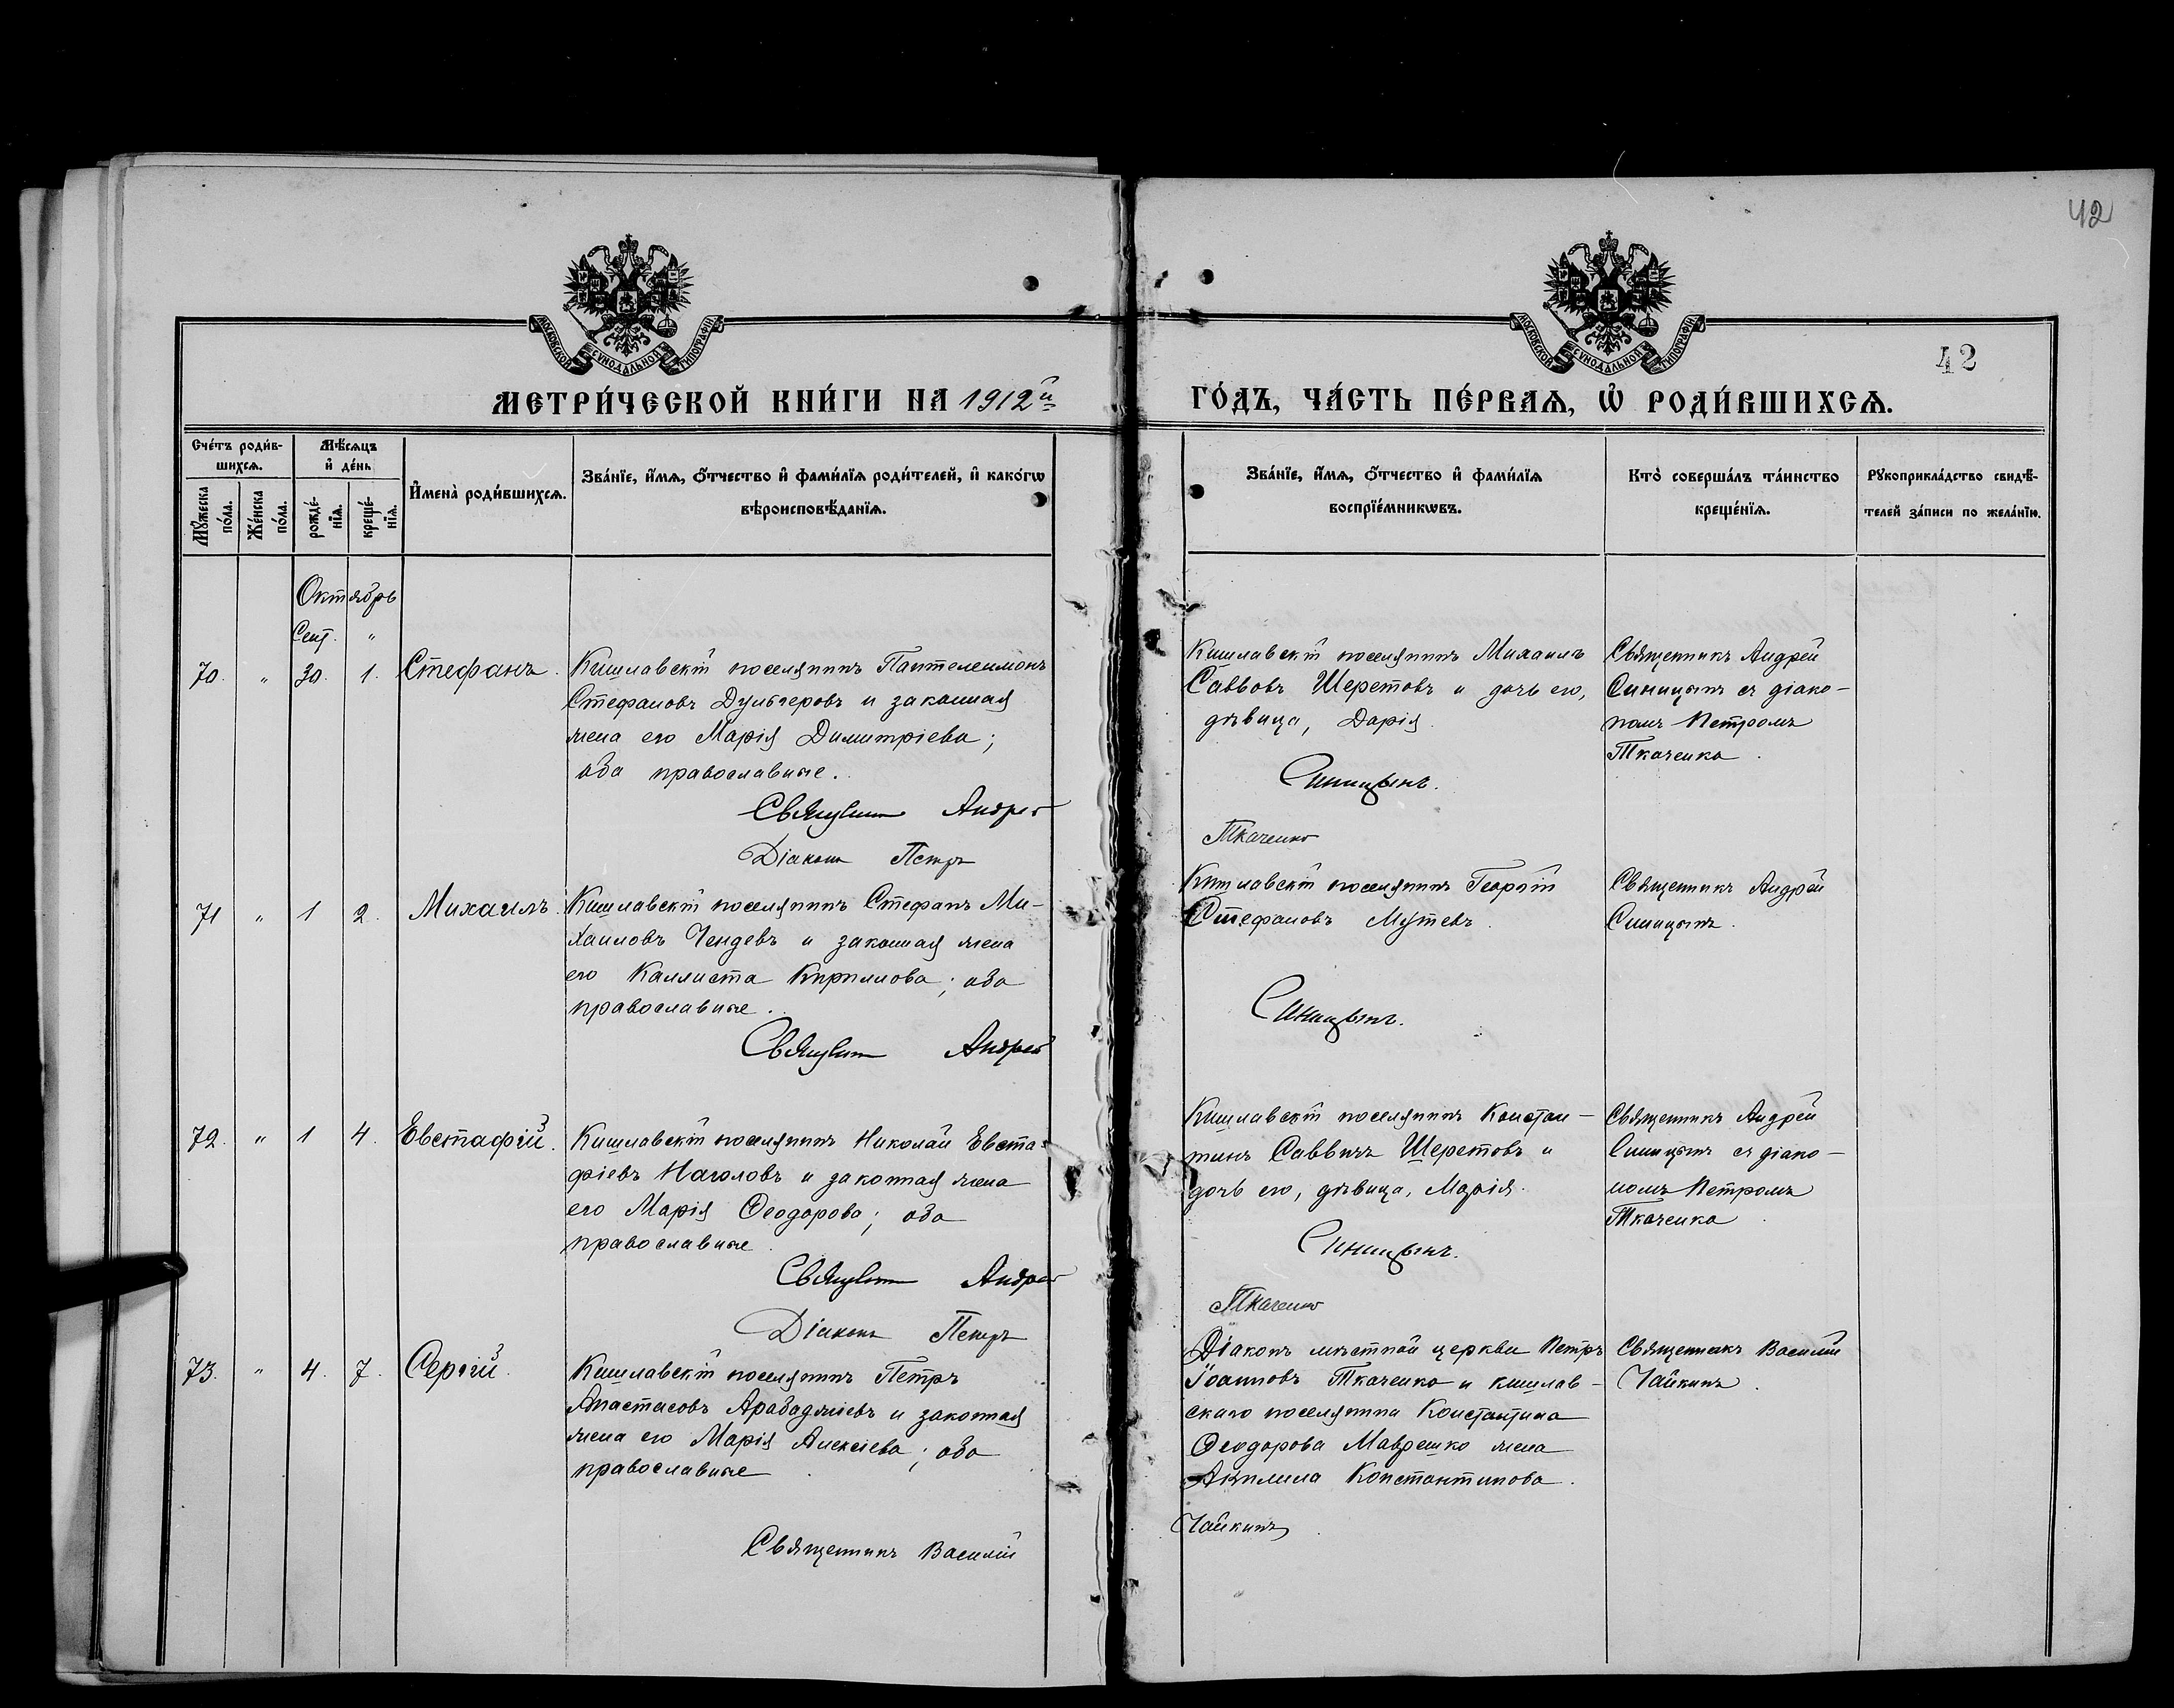 42
МОСКОВСКОЙ СѴНОДАЛЬНОЙ ТИПОГРАФІИ
МОСКОВСКОЙ СѴНОДАЛЬНОЙ ТИПОГРАФІИ
42
МЕТРИ́ЧЕСКОЙ КНИ́ГИ НА 1912й
ГО́ДЪ, ЧА́СТЬ ПЕ́РВАѦ, Ѡ҆ РОДИ́ВШИХСѦ.
Счéтъ роди́в-
шихсѧ.
Мꙋ́жеска по́ла.
Же́нска по́ла.
Мѣ́сѧцъ
и҆ де́нь
рожде́-нїѧ.
креще́-нїѧ.
И҆мена̀ роди́вшихсѧ.
Зва́нїе, и҆́мѧ, ѻ҆́тчество и҆ фами́лїѧ роди́телей, и҆ како́гѡ
вѣроисповѣ́данїѧ.
Зва́нїе, и҆́мѧ, ѻ҆́тчество и҆ фами́лїѧ
воспрїе́мникѡвъ.
Кто̀ соверша́лъ та́инство
креще́нїѧ.
Рꙋкоприкла́дство свидѣ́-
телей за́писи по жела́нїю.
Октябрь
Сент. "
70. " 30. 1. Стефанъ.
Кишлавскій поселянинъ Пантелеимонъ
Стефановъ Дульгеровъ и законная
жена его Марія Димитріева;
оба православные.
Священникъ Андрей
Діаконъ Петръ
Кишлавскій поселянинъ Михаилъ
Саввовъ Шеретовъ и дочь его,
дѣвица, Дарія.
Синицынъ.
Ткаченко
Священникъ Андрей
Синицынъ съ діако-
номъ Петромъ
Ткаченко.
71 " 1 2. Михаилъ.
Кишлавскій поселянинъ Стефанъ Ми-
хаиловъ Чендевъ и законная жена
его Каллиста Кириллова; оба
православные.
Священникъ Андрей
Кишлавскій поселянинъ Георгій
Стефановъ Мутевъ.
Синицынъ.
Священникъ Андрей
Синицынъ.
72. " 1 4. Евстафій.
Кишлавскій поселянинъ Николай Евста-
фіевъ Наголовъ и законная жена
его Марія Ѳеодорова; оба
православные.
Священникъ Андрей
Діаконъ Петръ
Кишлавскій поселянинъ Констан-
тинъ Саввичъ Шеретовъ и
дочь его, дѣвица, Марія.
Синицынъ.
Ткаченко
Священникъ Андрей
Синицынъ съ діако-
номъ Петромъ
Ткаченко.
73. " 4. 7. Сергій.
Кишлавскій поселянинъ Петръ
Анастасовъ Арабаджіевъ и законная
жена его Марія Алексіева; оба
православные.
Священникъ Василій
Діаконъ мѣстной церкви Петръ
Іоанновъ Ткаченко и кишлав-
скаго поселянина Константина
Ѳеодорова Маврешко жена
Константинова.
Чайкинъ
Священникъ Василій
Чайкинъ.